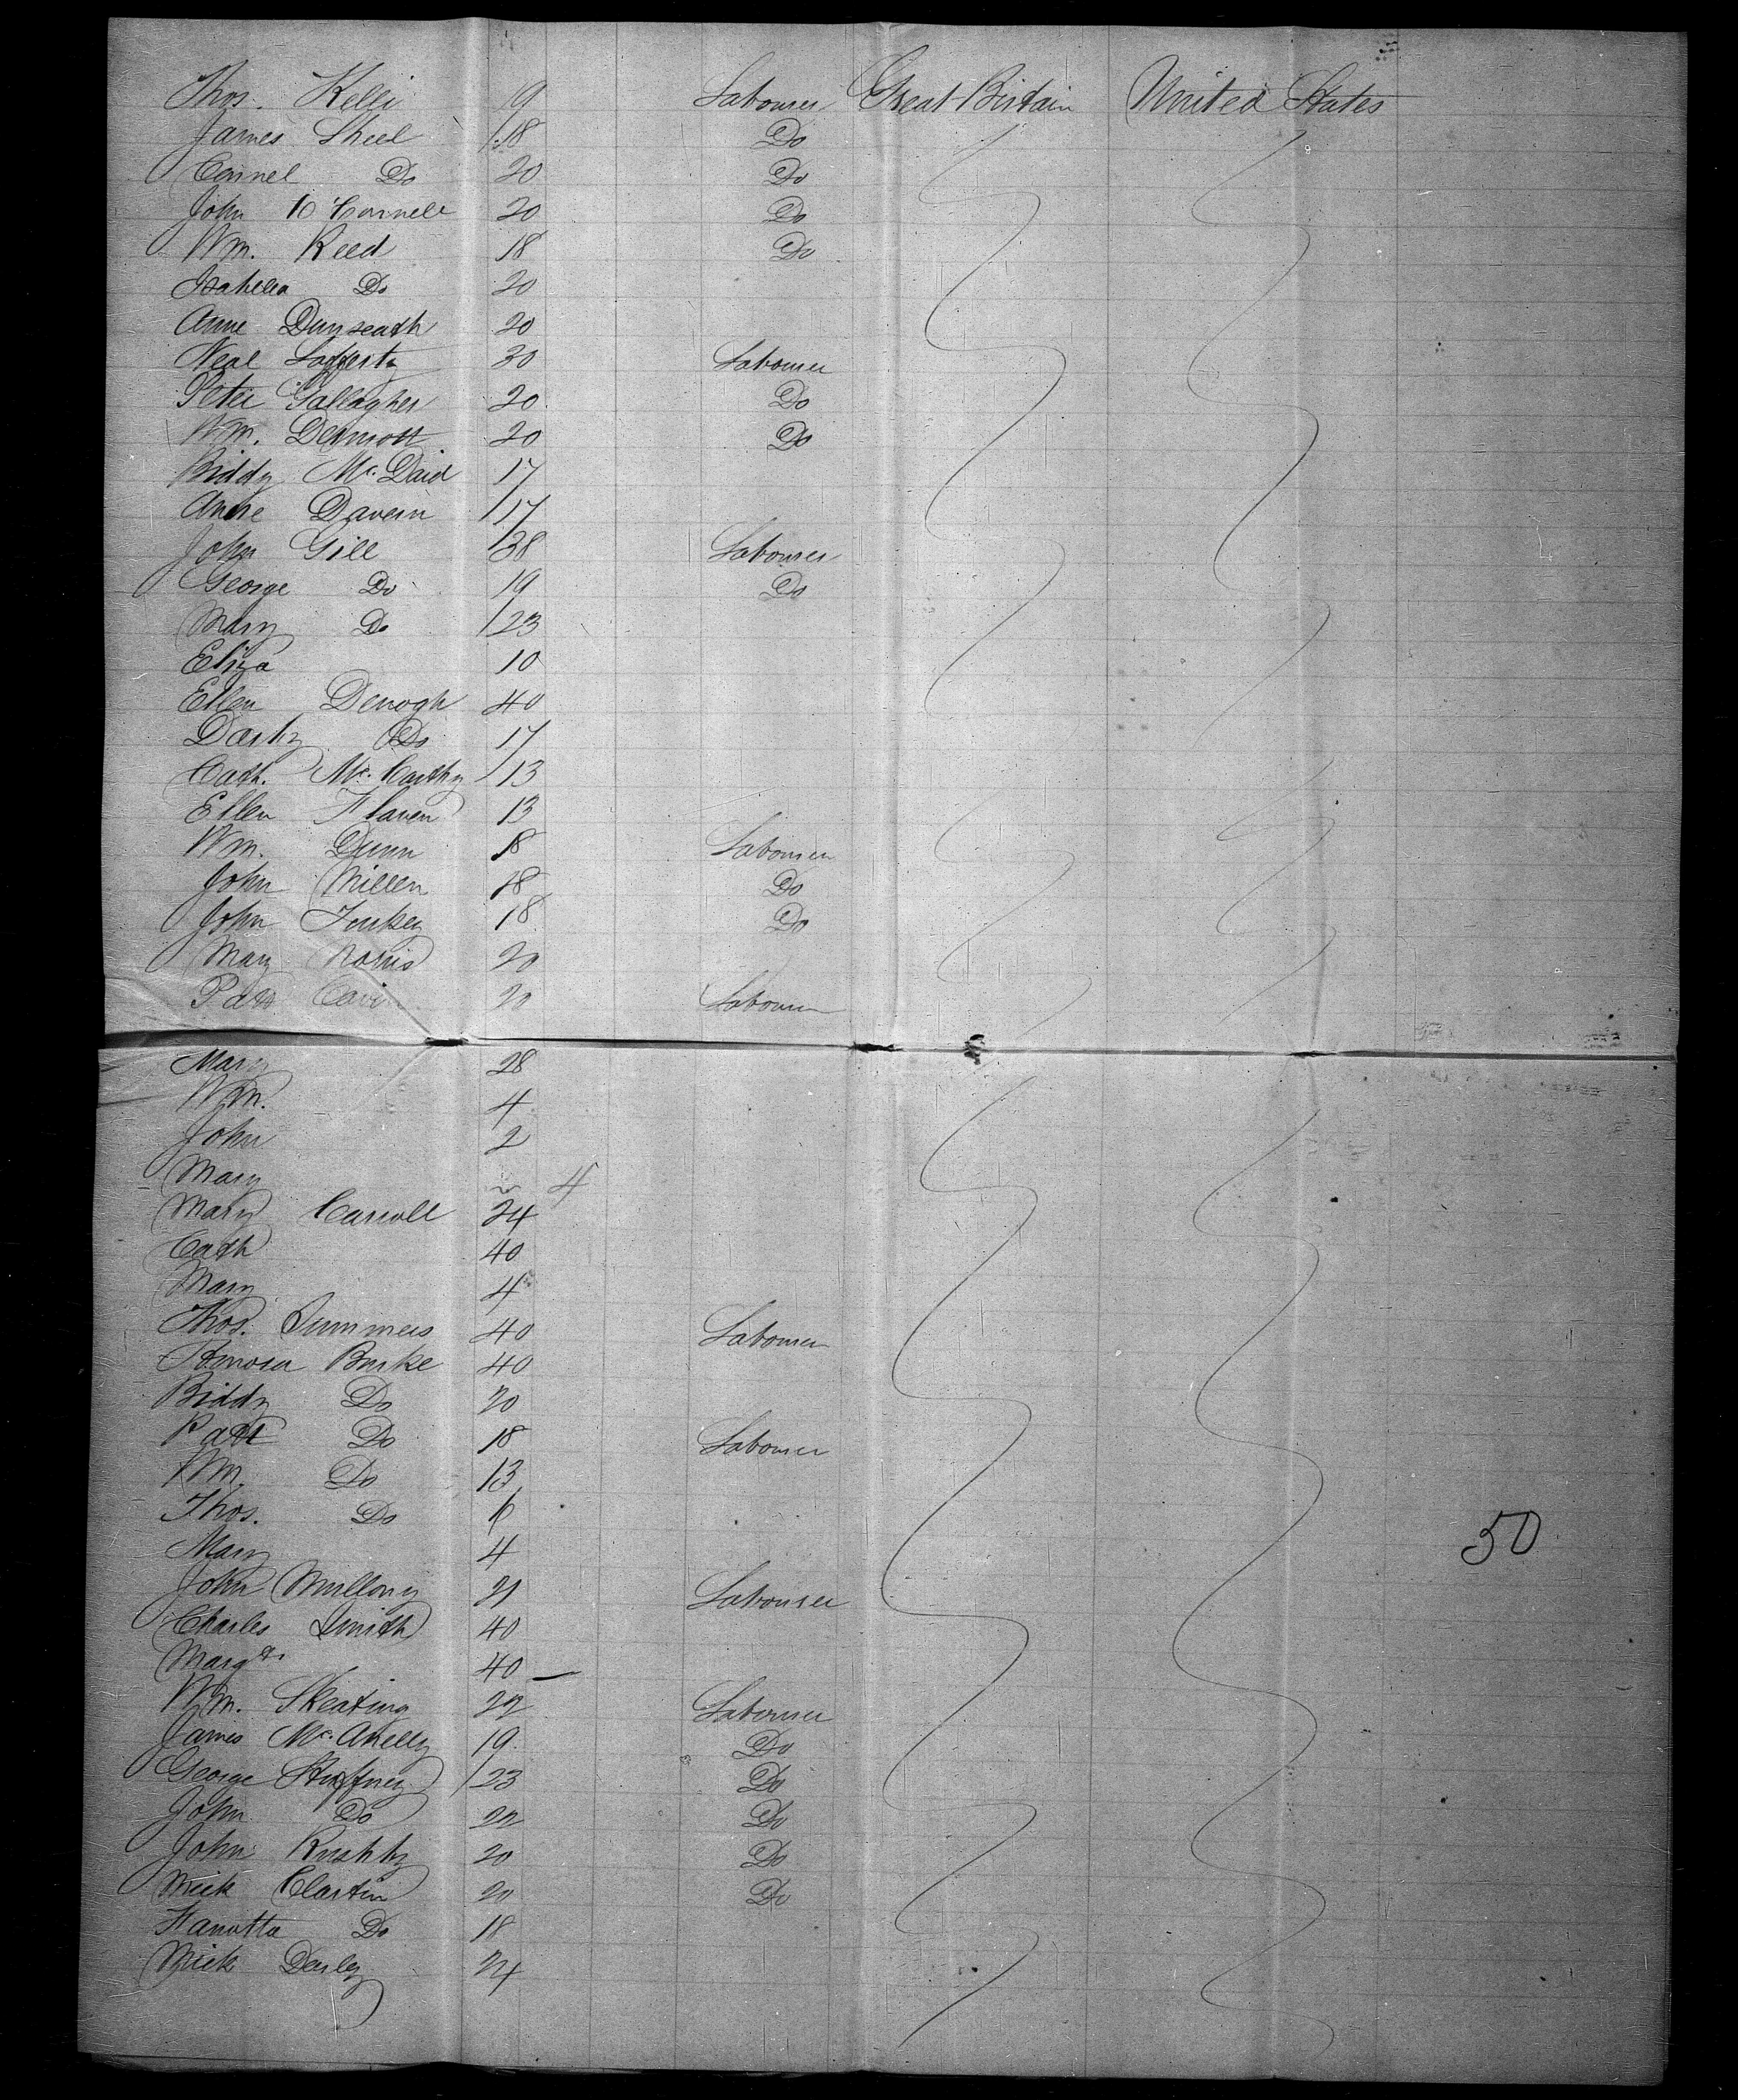 Thos. Kelli 19 Labourer Great Britain United States
James Sheel 18 Do
Connel Do 20 Do
John O'Connell 20 Do
Wm. Reed 18 Do
Isabella Do 20
Anne Dunseath 20
Neal Lafferty 30 Labourer
Peter Gallagher 20 Do
Wm. Dermott 20 Do
Biddy Mc.Daid 17
Anne Davern 17
John Gill 38 Labourer
George Do 19 Do
Mary Do 23
Eliza 10
Ellen Denogh 40
Darby Do 17
Cath. Mc.Carthy 13
Ellen Flaven 13
Wm. Dunn 18 Labourer
John Millen 18 Do
John 18 Do
Mary Norris 20
Patt Cavin 20 Labourer
Mary 28
Wm. 4
John 2
Mary 4
Mary Carroll 24
Cath 40
Mary 4
Thos. Summers 40 Labourer
Honora Burke 40
Biddy Do 20
Patt Do 18 Labourer
Wm. Do 13
Thos. Do 6
Mary 4 50
John Mullony 21 Labourer
Charles Smith 40
Margt. 40 —
Wm. Skeating 22 Labourer
James Mc.Anelly 19 Do
George 23 Do
John Do 22 Do
John 20 Do
Mick Clartin 20 Do
Do 18
Mick Darley 24